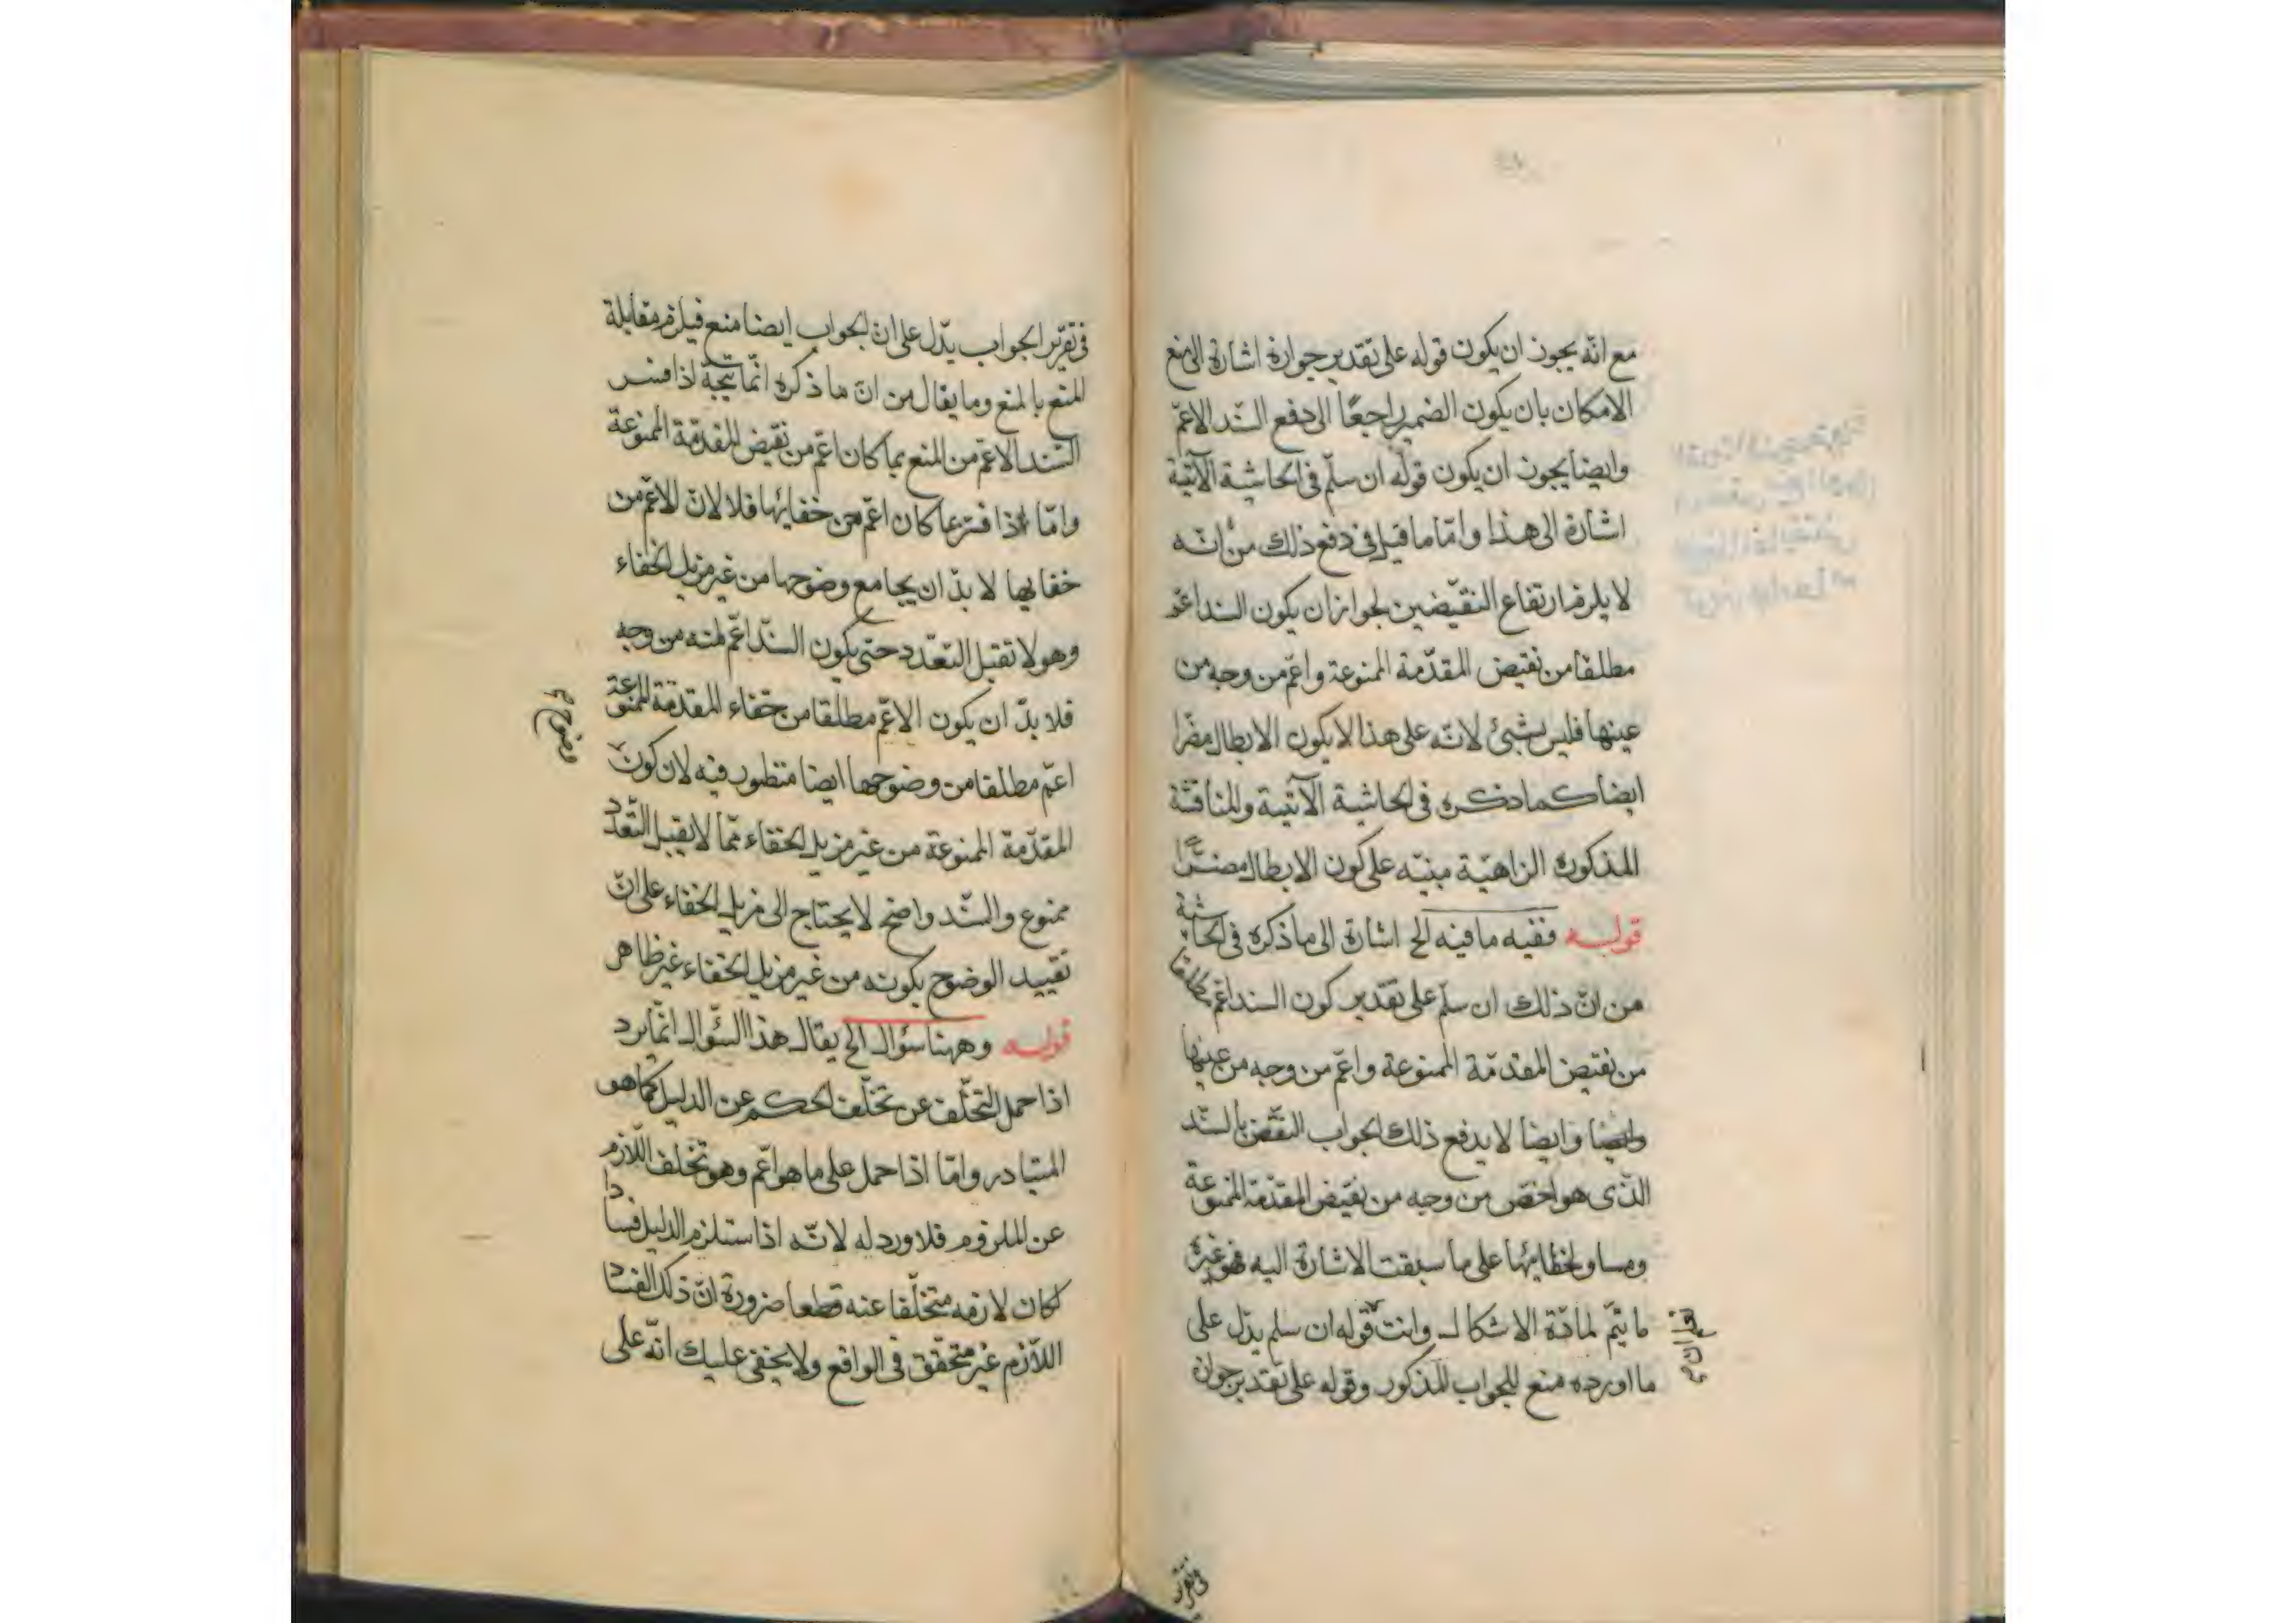 مع انّه يجوز ان يكون قوله على تقدير جوازه اشارة الى منع
الامكان بان يكون الضمير راجعًا الى دفع السّند الاعمّ
وايضا يجوز ان يكون قوله ان سلّم فى الحاشية الآتية
اشارة الى هذا وامّا ما قيل فى دفع ذلك من انّه
لا يلزم ارتفاع النقيضين لجواز ان يكون السند اعمّ
مطلقا من نقيض المقدّمة الممنوعة واعمّ من وجه من
عينها فليس بشئ لانّه على هذا لا يكون الابطال مضرّا
ايضا كما ذكره فى الحاشية الآتية والمناقشة
المذكورة الزاهيّة مبنيّه على كون الابطال مضرًّا
قوله ففيه ما فيه الخ اشارة الى ما ذكره فى الحاشية
من انّ ذلك ان سلّم على تقدير كون السند اعمّ مطلقا
من نقيض المقدّمة الممنوعة واعمّ من وجه من عينها
وايضا وايضا لا يدفع ذلك الجواب النقض بالسّند
الذى هو اخصّ من وجه من نقيض المقدّمة الممنوعة
ومساو لخفائها على ما سبقت الاشارة اليه فهو غير
ما يتمّ لمادّة الاشكال وانت قوله ان سلم يدّل على
ما اورده منع للجواب المذكور وقوله على تقدير جوازه
فى تقرير
فى تقرير الجواب يدّل على انّ الجواب ايضا منع فيلزم مقابلة
المنع بالمنع وما يقال من انّ ما ذكره انّما يتجّه اذا فسر
السّند الاعمّ من المنع بما كان اعمّ من نقيض المقدّمة الممنوعة
وامّا اذا فسّر بما كان اعمّ من خفائها فلا لانّ الاعمّ من
خفايها لا بدّ ان يجامع وضوحها من غير مزيل الخفاء
وهو لا تقبل التعّدد حتى يكون السّند اعمّ منه من وجه
فلا بدّ ان يكون الاعمّ مطلقا من خفاء المقدّمة الممنوعة
اعمّ مطلقا من وضوحها ايضا منظور فيه لان كون
وضوح
المقدّمة الممنوعة من غير مزيل الخفاء ممّا لا يقبل التّعدّد
ممنوع والسّند واضح لا يحتاج الى مزيل الخفاء على انّ
تقييد الوضوح بكونه من غير مزيل الخفاء غير ظاهر
قوله وههنا سؤال الخ يقال هذا السّؤال انّما يرد
اذا حمل التخلّف عن تخلّف الحكم عن الدليل كما هو
المتبادر وامّا اذا حمل على ما هو اعّم وهو تخلف اللّازم
عن الملزوم فلا ورد له لانّه اذا استلزم الدليل فسادا
كان لازمه متخلّفا عنه قطعا ضرورة انّ ذلك الفساد
اللّازم غير متحقّق فى الواقع ولا يخفى عليك انّه على